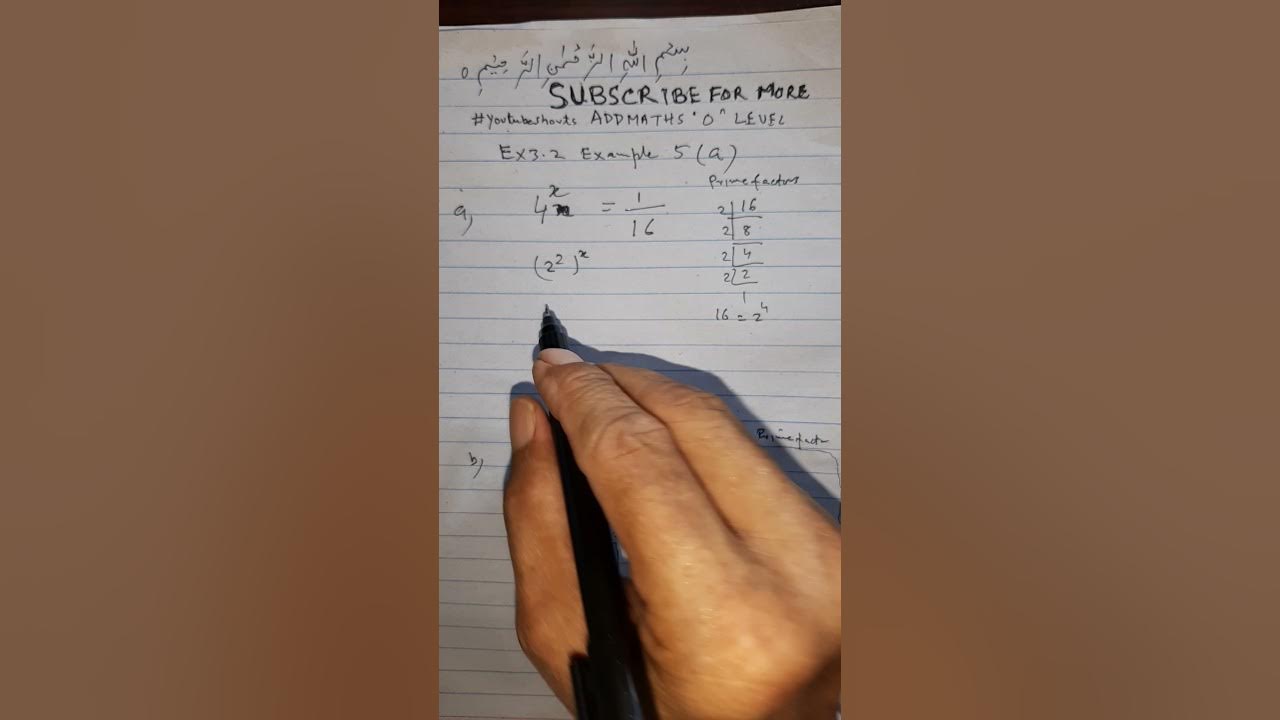 بِسْمِ اللهِ الرَّحْمٰنِ الرَّحِيْمِ ٥
SUBSCRIBE FOR MORE
#youtubeshouts ADDMATHS "O" LEVEL
Ex3.2 Example 5 (a)
Prime factors
a, 4^x = 1/16
(2^2)^x
2 | 16
2 | 8
2 | 4
2 | 2
1
16 = 2^4
Prime factor
b,